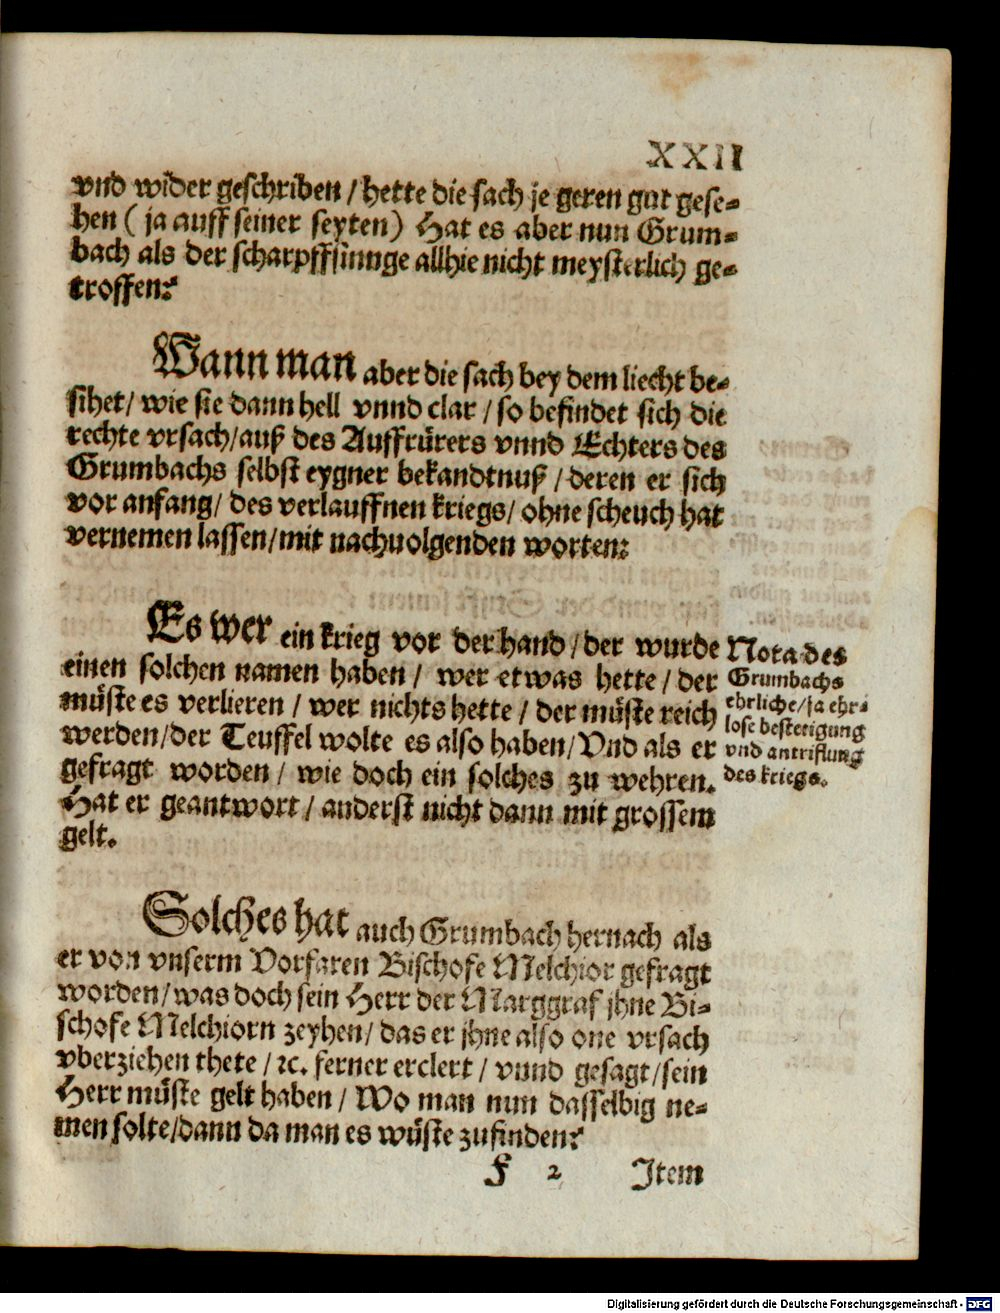 XXII
vnd wider geschriben / hette die sach je geren gut gese-
hen ( ja auff seiner seyten) Hat es aber nun Grum-
bach als der scharpffsinnge allhie nicht meysterlich ge-
troffen?
Wann man aber die sach bey dem liecht be-
sihet / wie sie dann hell vnnd clar / so befindet sich die
rechte vrsach / auß des Auffrürers vnnd Echters des
Grumbachs selbst eygner bekandtnuß / deren er sich
vor anfang / des verlauffnen kriegs / ohne scheuch hat
vernemen lassen / mit nachuolgenden worten:
Es wer ein krieg vor der hand / der wurde
einen solchen namen haben / wer etwas hette / der
müste es verlieren / wer nichts hette / der müste reich
werden / der Teuffel wolte es also haben / Vnd als er
gefragt worden / wie doch ein solches zu wehren.
Hat er geantwort / anderst nicht dann mit grossem
gelt.
Nota des
Grumbachs
ehrliche / ja ehr-
lose bestetigung
vnd antrifflung
des kriegs.
Solches hat auch Grumbach hernach als
er von vnserm Vorfaren Bischofe Melchior gefragt
worden / was doch sein Herr der Marggraf jhne Bi-
schofe Melchiorn zeyhen / das er jhne also one vrsach
vberziehen thete / ꝛc. ferner erclert / vnnd gesagt / sein
Herr müste gelt haben / Wo man nun dasselbig ne-
men solte / dann da man es wüste zufinden?
F 2 Item
Digitalisierung gefördert durch die Deutsche Forschungsgemeinschaft - DFG